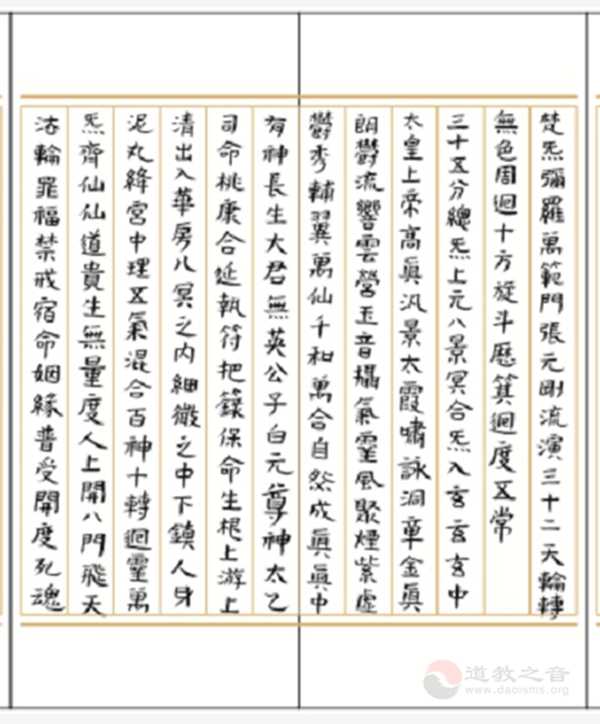 梵炁彌羅萬範門張元剛流演三十二天輪轉
無色周迴十方旋斗歷箕迴度五常
三十五分總炁上元八景冥合炁入玄玄玄中
太皇上帝高眞汎景太霞嘯詠洞章金眞
朗鬱流響雲營玉音攝氣靈風聚煙紫虛
鬱秀輔翼萬仙千和萬合自然成眞眞中
有神長生大君無英公子白元尊神太乙
司命桃康合延執符把籙保命生根上游上
清出入華房八冥之内細微之中下鎮人身
泥丸絳宮中理五氣混合百神十轉迴靈萬
炁齊仙仙道貴生無量度人上開八門飛天
法輪罪福禁戒宿命姻緣普受開度死魂
道教之音
www.daoisms.org